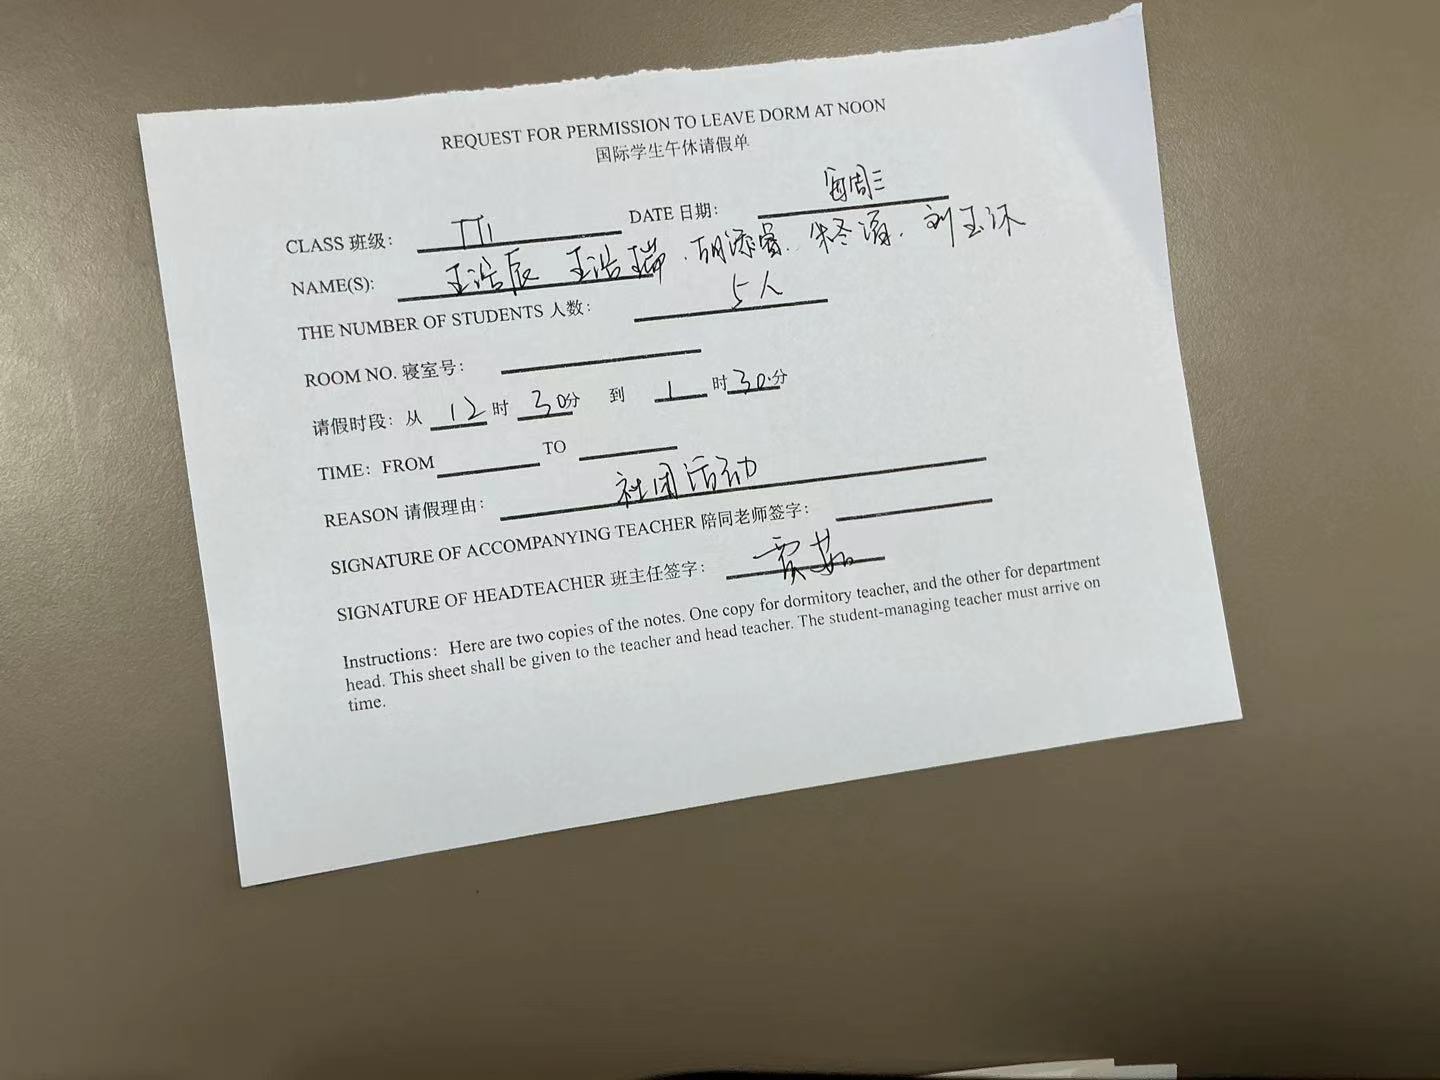 REQUEST FOR PERMISSION TO LEAVE DORM AT NOON
国际学生午休请假单
CLASS 班级： DATE 日期： 每周三
NAME(S): 王浩辰 王浩瑞 . 胡添 . 朱 . 刘玉
THE NUMBER OF STUDENTS 人数： 5人
ROOM NO. 寝室号：
请假时段：从 12 时 30分 到 1 时 30.分
TIME：FROM TO
REASON 请假理由： 社团活动
SIGNATURE OF ACCOMPANYING TEACHER 陪同老师签字：
SIGNATURE OF HEADTEACHER 班主任签字： 贾茹
Instructions： Here are two copies of the notes. One copy for dormitory teacher, and the other for department
head. This sheet shall be given to the teacher and head teacher. The student-managing teacher must arrive on
time.